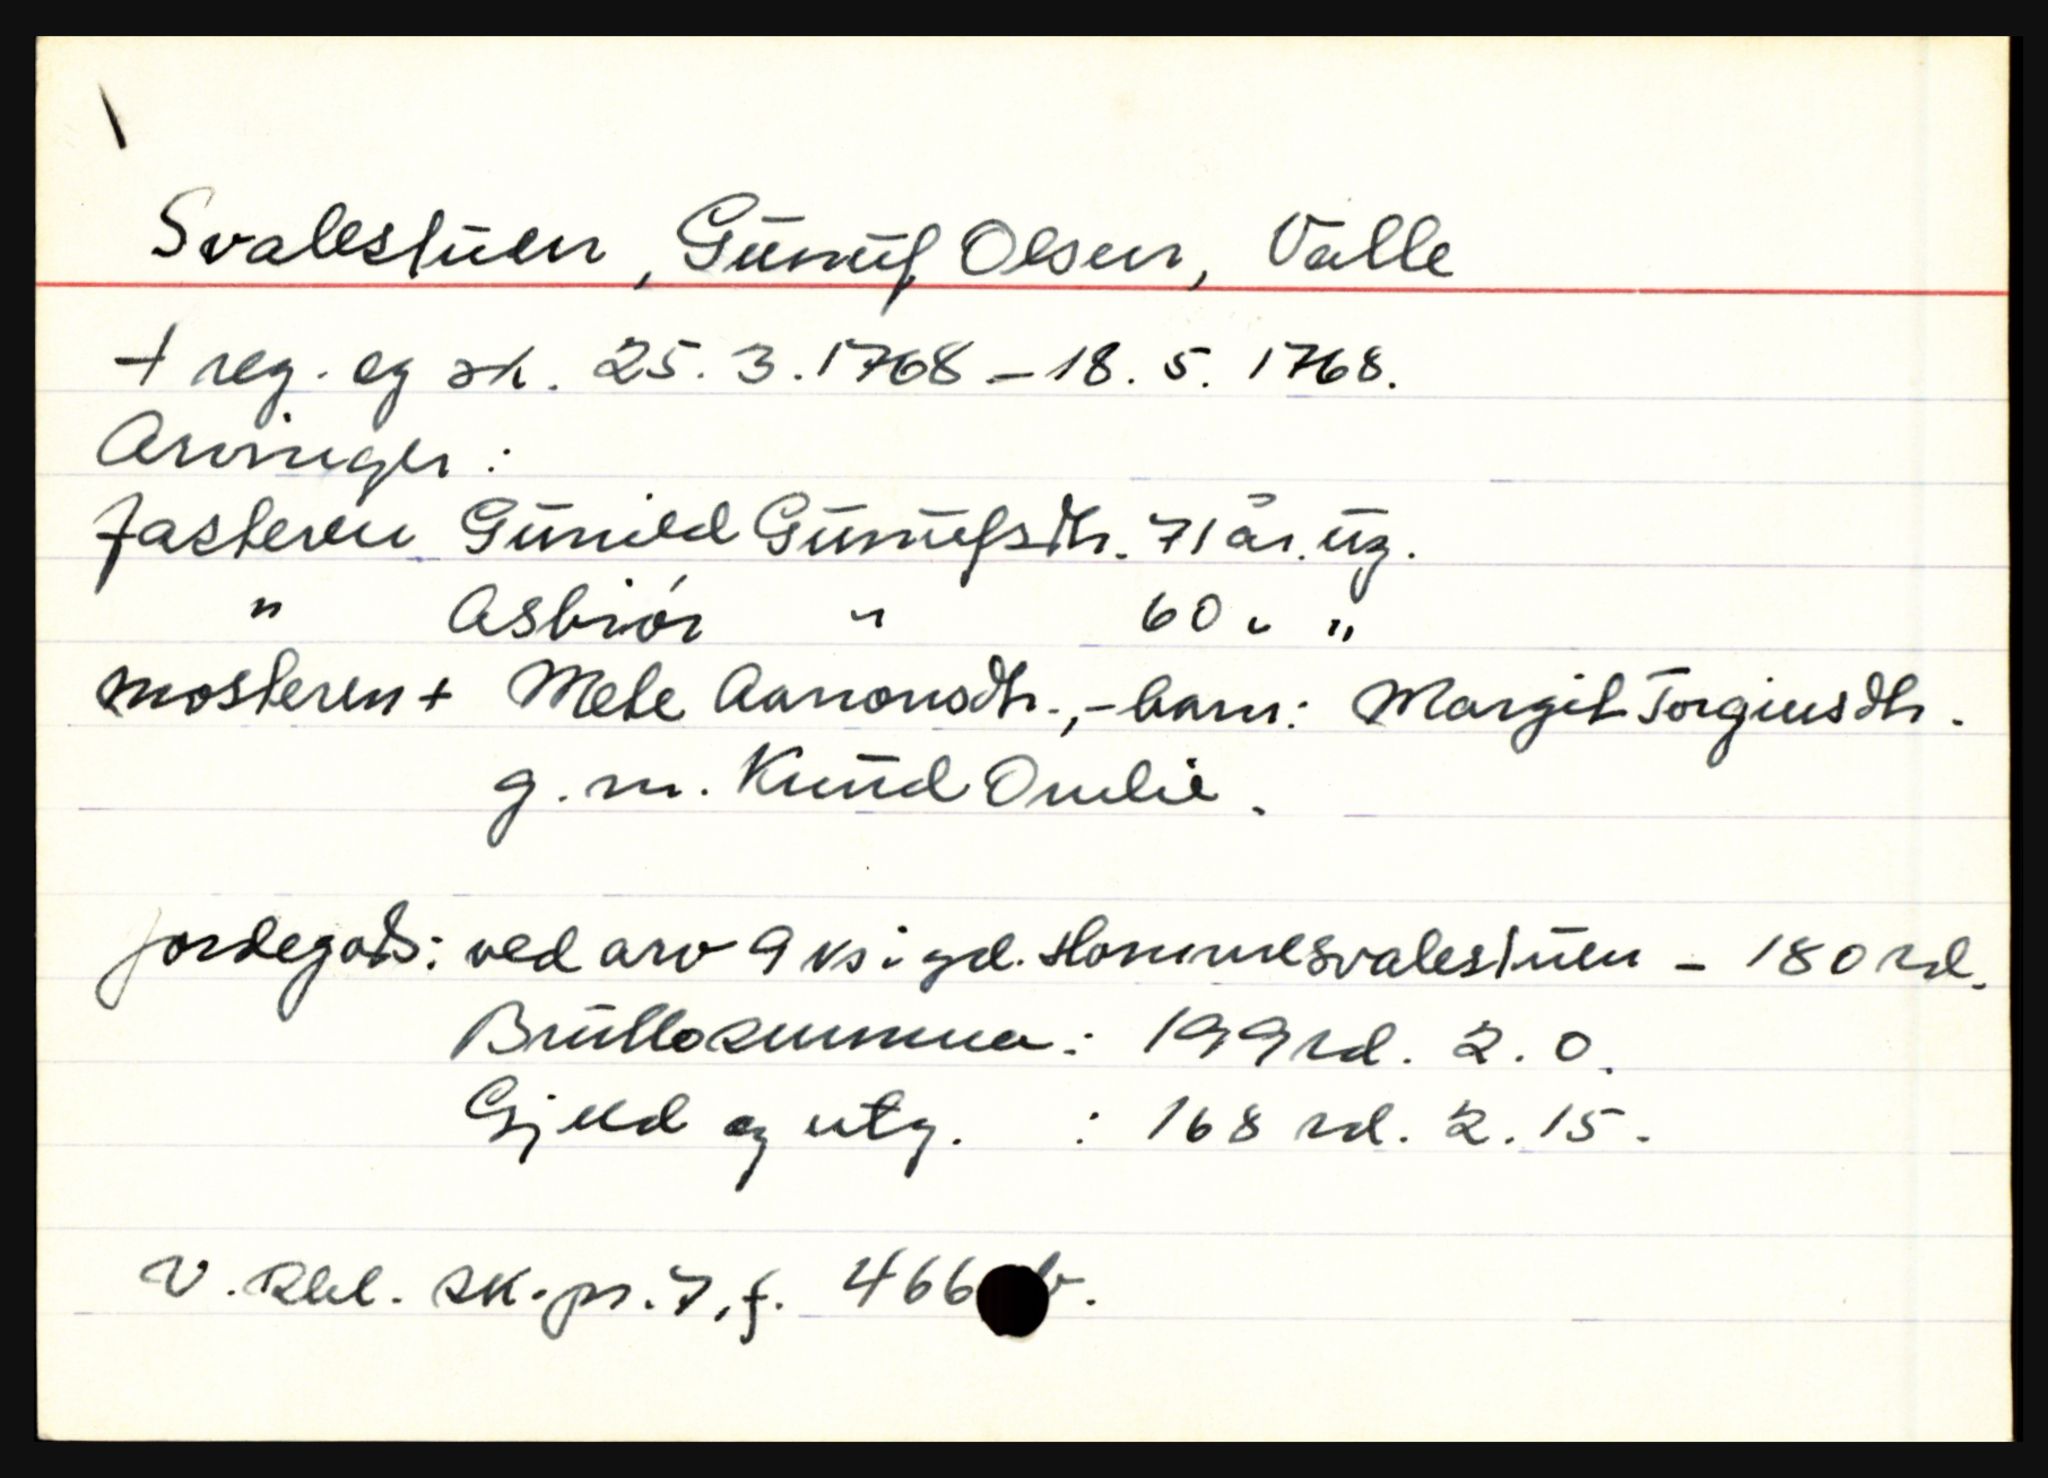 Svalestuen, Gunuf Olsen, Valle
+ reg. og sk. 25.3.1768 – 18.5.1768.
Arvinger:
fasteren Gunild Gunufsdtr. 71 år. ug.
" Asbiør " 60 " "
mosteren + Mete Aanonsdtr., – barn: Margit Torgiusdtr.
g.m. Knud Omlie.
Jordegods: ved arv 9 ks i gd. Hommesvalestuen – 180 rd.
Bruttosumma: 199 rd. 2. 0.
Gjeld og utg. : 168 rd. 2. 15.
V. Rbl. sk. pr. 7, f. 466 b.